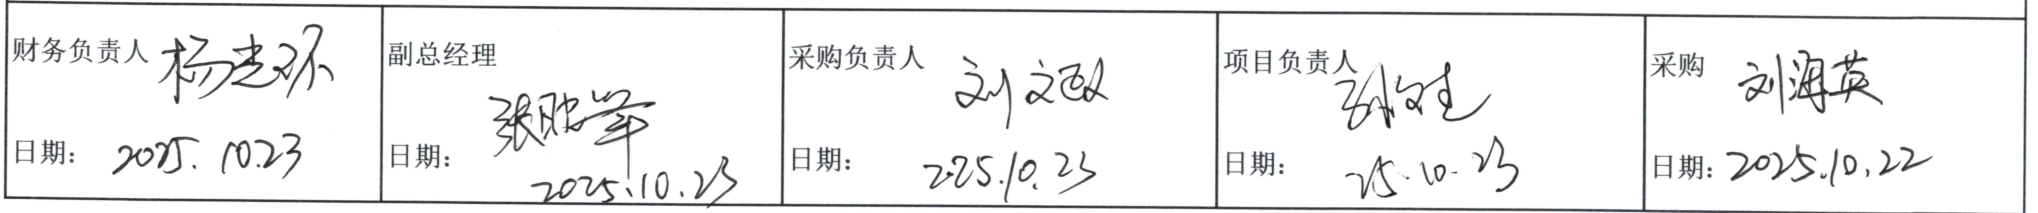 财务负责人 杨志环
日期： 2025.10.23
副总经理
张胜军
日期：
2025.10.23
采购负责人
刘文政
日期： 2025.10.23
项目负责人
日期： 25.10.23
采购 刘海英
日期：2025.10.22